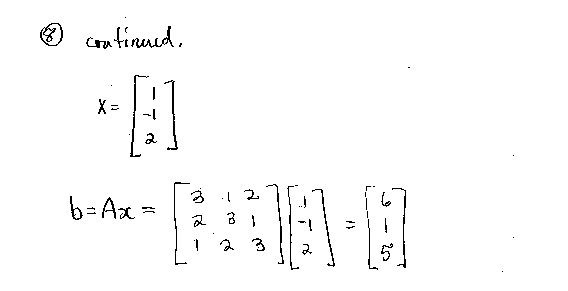 ⑧ continued.
x = [1
-1
2]
b = Ax = [3 1 2 [1 = [6
2 3 1 -1 1
1 2 3] 2] 5]